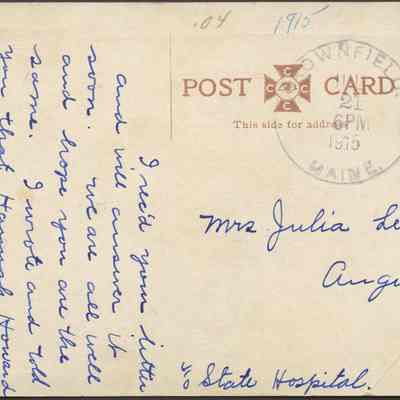 .04
1915
POST CARD
C C C C
This side for address
BROWNFIELD
21
6PM
1915
MAINE.
Mrs. Julia Le
Augu
c/o State Hospital.
I rec'd your letter
and will answer it
soon. We are all well
and hope you are the
same. I wrote and told
you that Hannah Howard